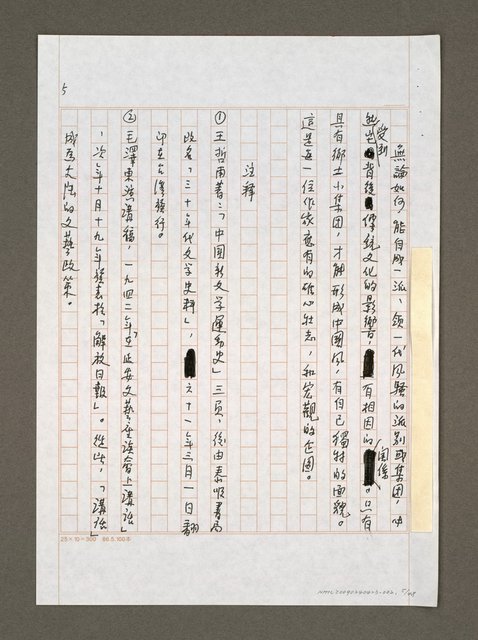 5
無論如何,能自成一派、領一代風騷的派別或集團,中
受到背後傳統文化的影響,有相因的關係。只有
具有鄉土小集團,才能形成中國風,有自己獨特的面貌。
這是每一位作家應有的雄心壯志,和宏觀的企圖。
註釋
①王哲甫著:「中國新文學運動史」三頁,後由泰順書局
改名「三十年代文學史料」,六十一年三月一日翻
印在台灣發行。
②毛澤東演講稿,一九四二年「在延安文藝座談會上講話」
,次年十月十九年發表於「解放日報」。從此,「講話」
成為大陸的文藝政策。
25×10=300 86.5.100本
NMTL20090240023-002. 5/08